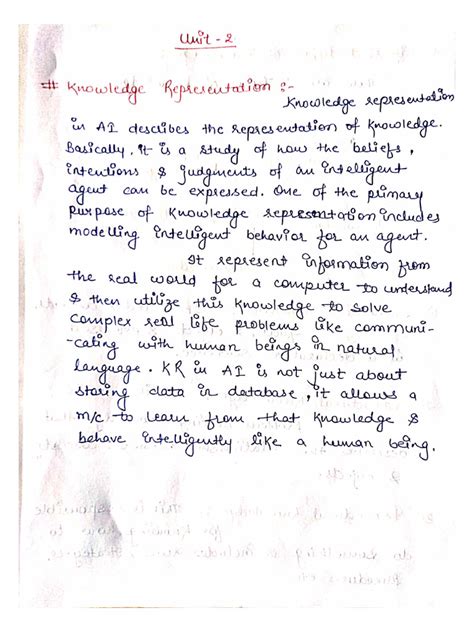 Unit - 2
# Knowledge Representation :-
Knowledge representation
in AI describes the representation of knowledge.
Basically, it is a study of how the beliefs,
intentions & judgments of an intelligent
agent can be expressed. One of the primary
purpose of knowledge representation includes
modelling intelligent behavior for an agent.
It represent information from
the real world for a computer to understand
& then utilize this knowledge to solve
complex real life problems like communi-
-cating with human beings in natural
language. KR in AI is not just about
storing data in database, it allows a
m/c to learn from that knowledge &
behave intelligently like a human being.